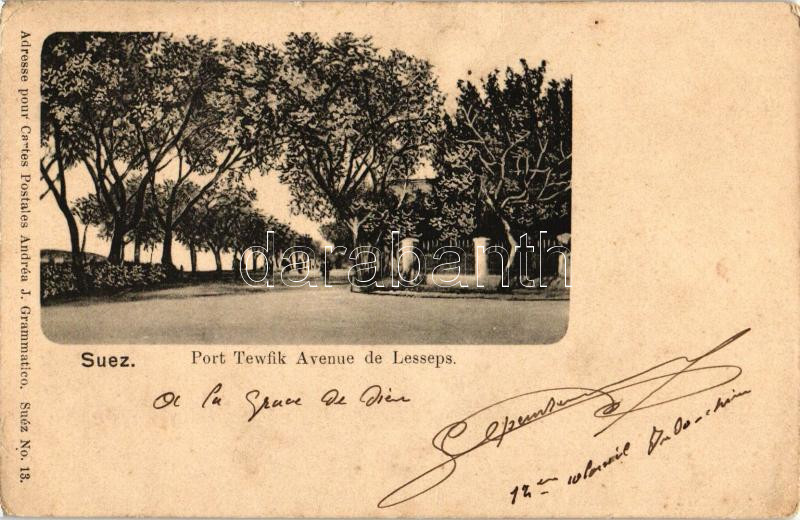 Adresse pour Cartes Postales Andréa J. Grammatico. Suéz No. 13.
darabanth
Suez. Port Tewfik Avenue de Lesseps.
a la grace de dieu
12ème Indo-chine